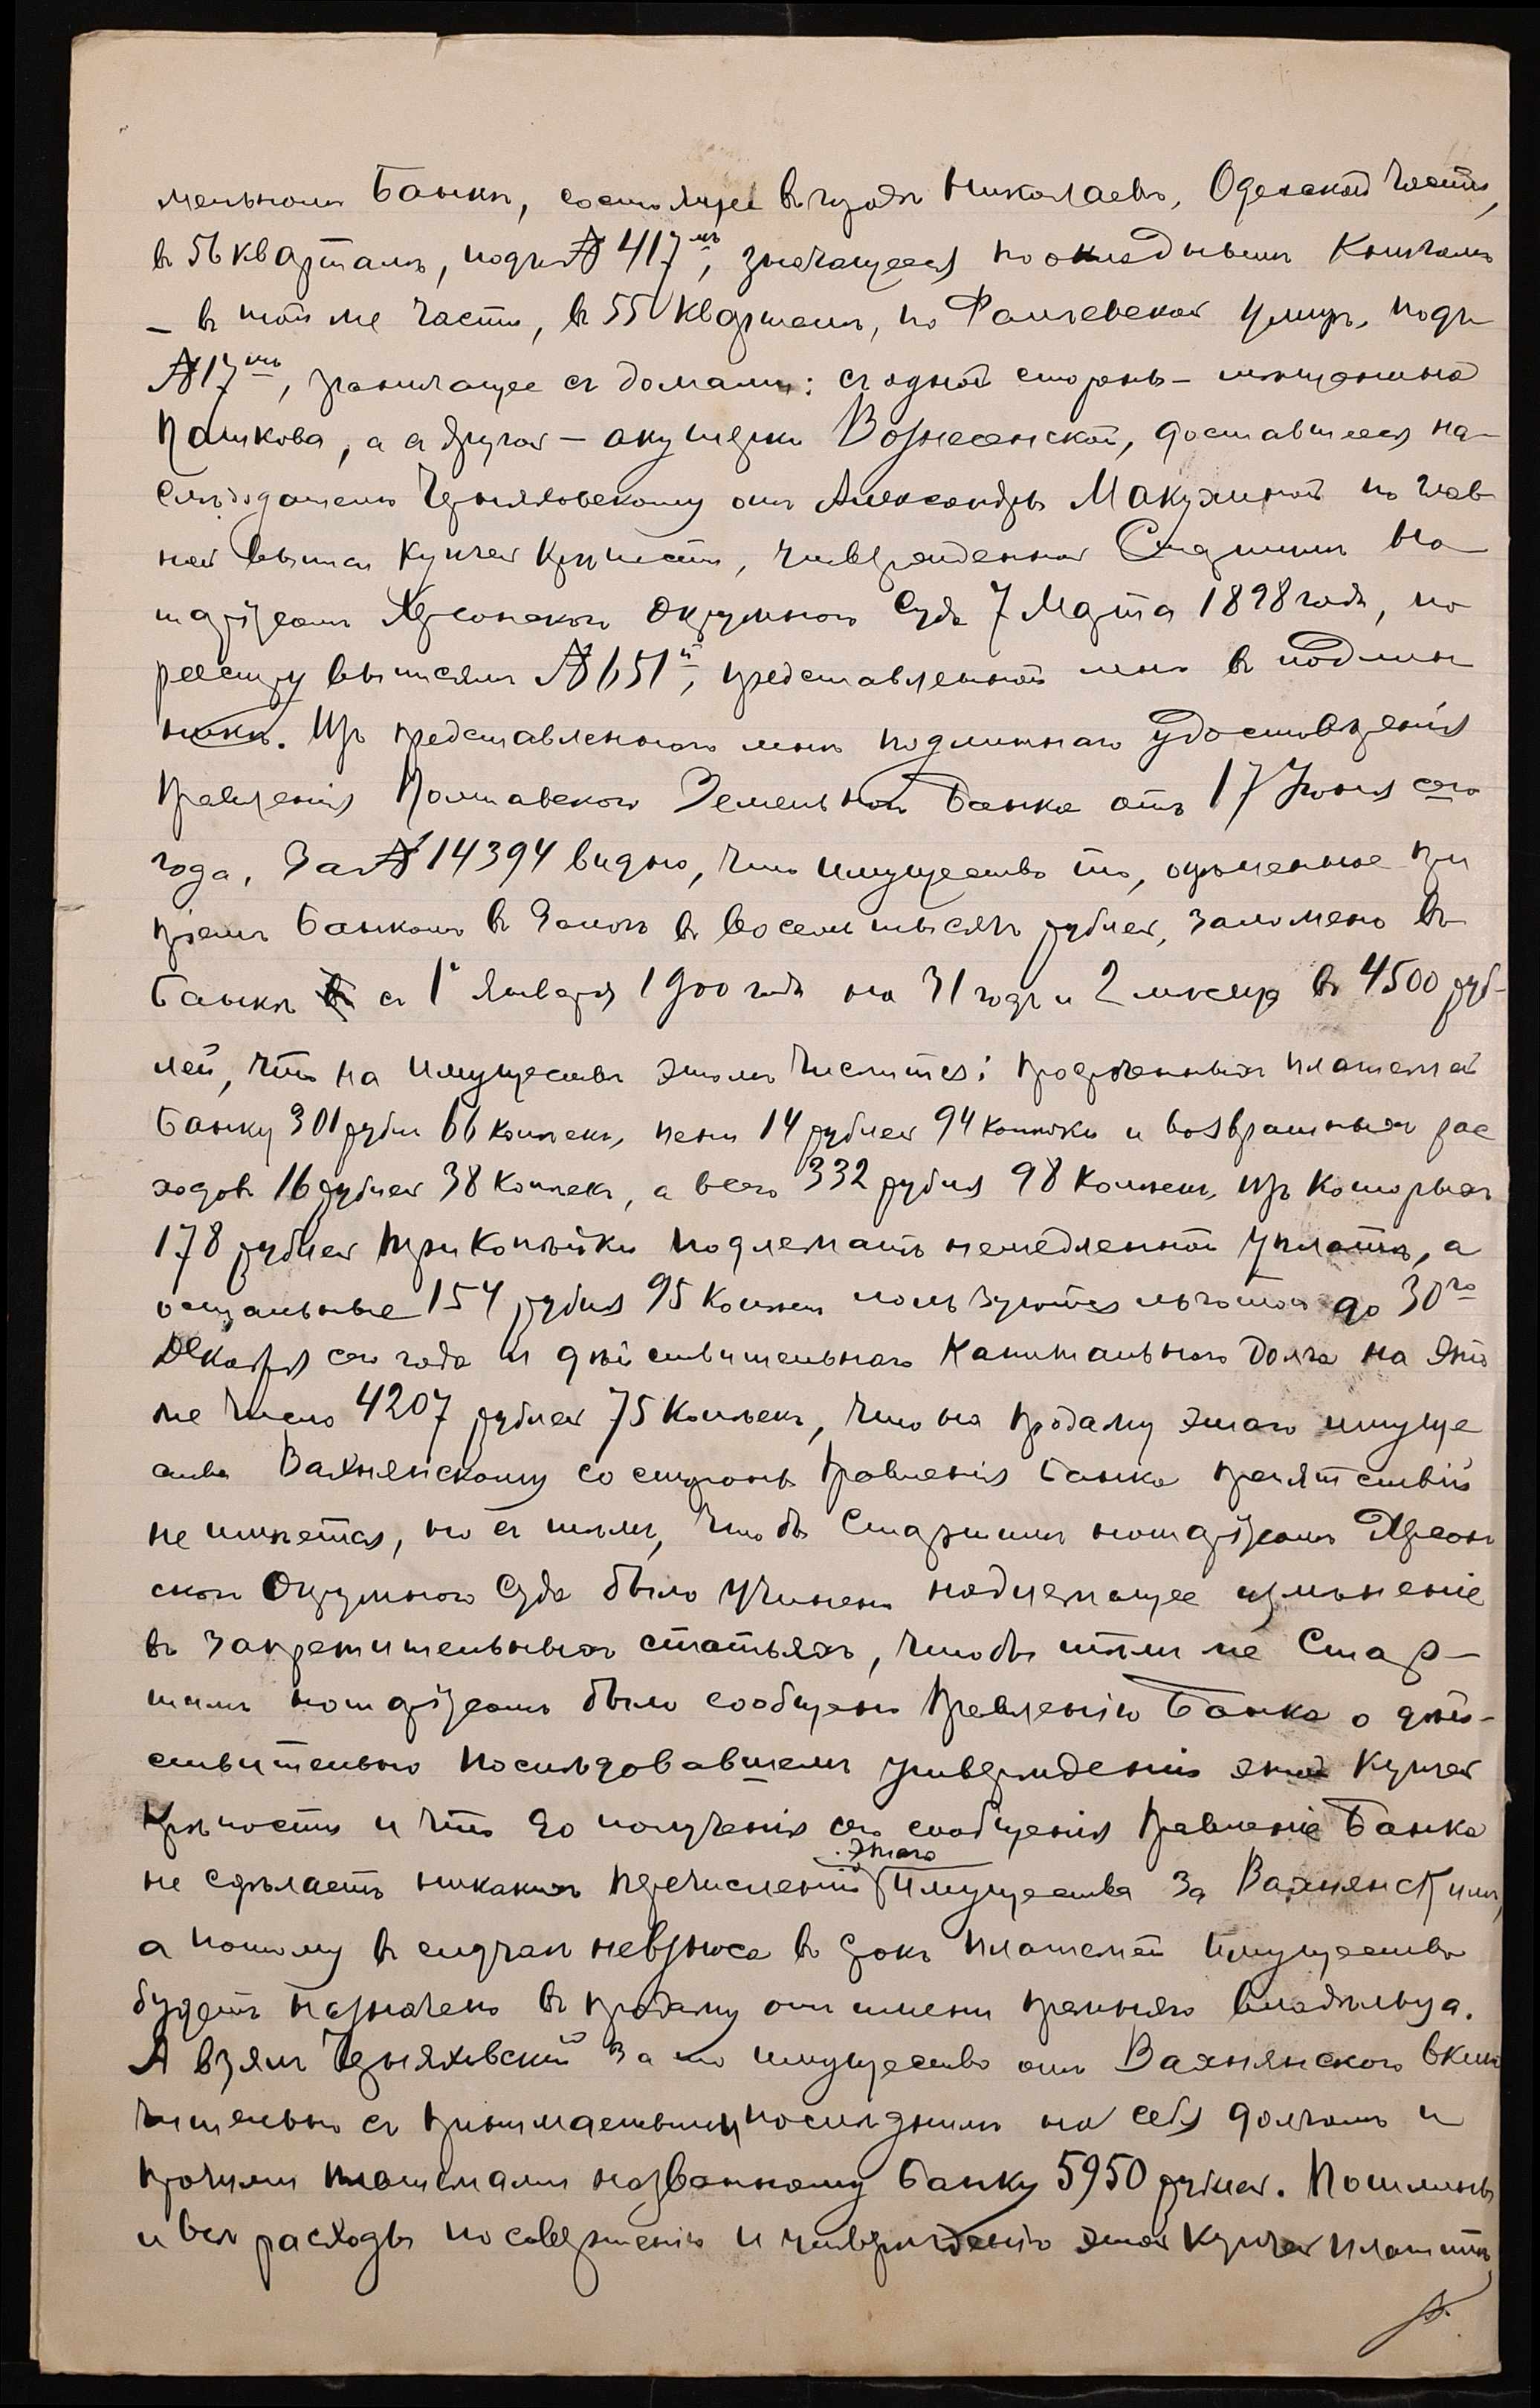 мельномъ Банкѣ, состоящее въ городѣ Николаевѣ, Одесской части,
въ 56 кварталѣ, подъ № 417мъ, значащееся по окладнымъ книгамъ
— въ той же части, въ 55 кварталѣ, по Фалѣевской улицѣ, подъ
№ 17мъ, граничащее съ домами: съ одной стороны — мѣщанина
Пашкова, а съ другой — акушерки Вознесенской, доставшееся на-
слѣдодателю Черняховскому отъ Александры Макухиной по глав-
ной выписи купчей крѣпости, утвержденной Старшимъ Но-
таріусомъ Херсонскаго Окружнаго Суда 7 Марта 1898 года, по
реестру выписямъ № 651й, представленной мнѣ въ подлин-
никѣ. Изъ представленнаго мнѣ подлиннаго удостовѣренія
Правленія Полтавскаго Земельнаго Банка отъ 17 Іюня сего
года, за № 14394 видно, что имущество то, оцѣненное при
пріемѣ Банкомъ въ залогъ въ восемь тысячъ рублей, заложено въ
Банкѣ съ 1 Января 1900 года на 31 годъ и 2 месяца въ 4500 руб-
лей, что на имуществѣ этомъ числится: просроченныхъ платежей
Банку 301 рубль 66 копѣекъ, пени 14 рублей 94 копѣйки и возвратныхъ рас
ходовъ 16 рублей 38 копѣекъ, а всего 332 рубля 98 копѣекъ, изъ которыхъ
178 рублей три копѣйки подлежатъ немедленной уплатѣ, а
остальные 154 рубля 95 копѣекъ пользуются льготой до 30го
Декабря сего года и дѣйствительнаго капитальнаго долга на это
же число 4207 рублей 75 копѣекъ, что на продажу этого имуще
ства Вахнянскому со стороны Правленія Банка препятствій
не имѣется, но съ тѣмъ, чтобы Старшимъ нотаріусомъ Херсон
скаго Окружнаго Суда было учинено надлежащее измѣненіе
въ запретительныхъ статьяхъ, чтобы тѣмъ же Стар-
шимъ нотаріусомъ было сообщено Правленію Банка о дѣй-
ствительно послѣдовавшемъ утвержденіи этой купчей
крѣпости и что до полученія сего сообщенія Правленіе Банка
не сдѣлаетъ никакихъ перечисленій этого имущества за Вахнянскимъ,
а потому въ случаѣ невзноса въ срокъ платежей имущество
будетъ назначено въ продажу отъ имени прежняго владѣльца.
А взялъ Черняховскій за то имущество отъ Вахнянскаго вклю
чительно съ принимаемымъ послѣднимъ на себя долгомъ и
прочими платежами названному Банку 5950 рублей. Пошлины
и всѣ расходы по совершенію и утвержденію этой купчей платитъ